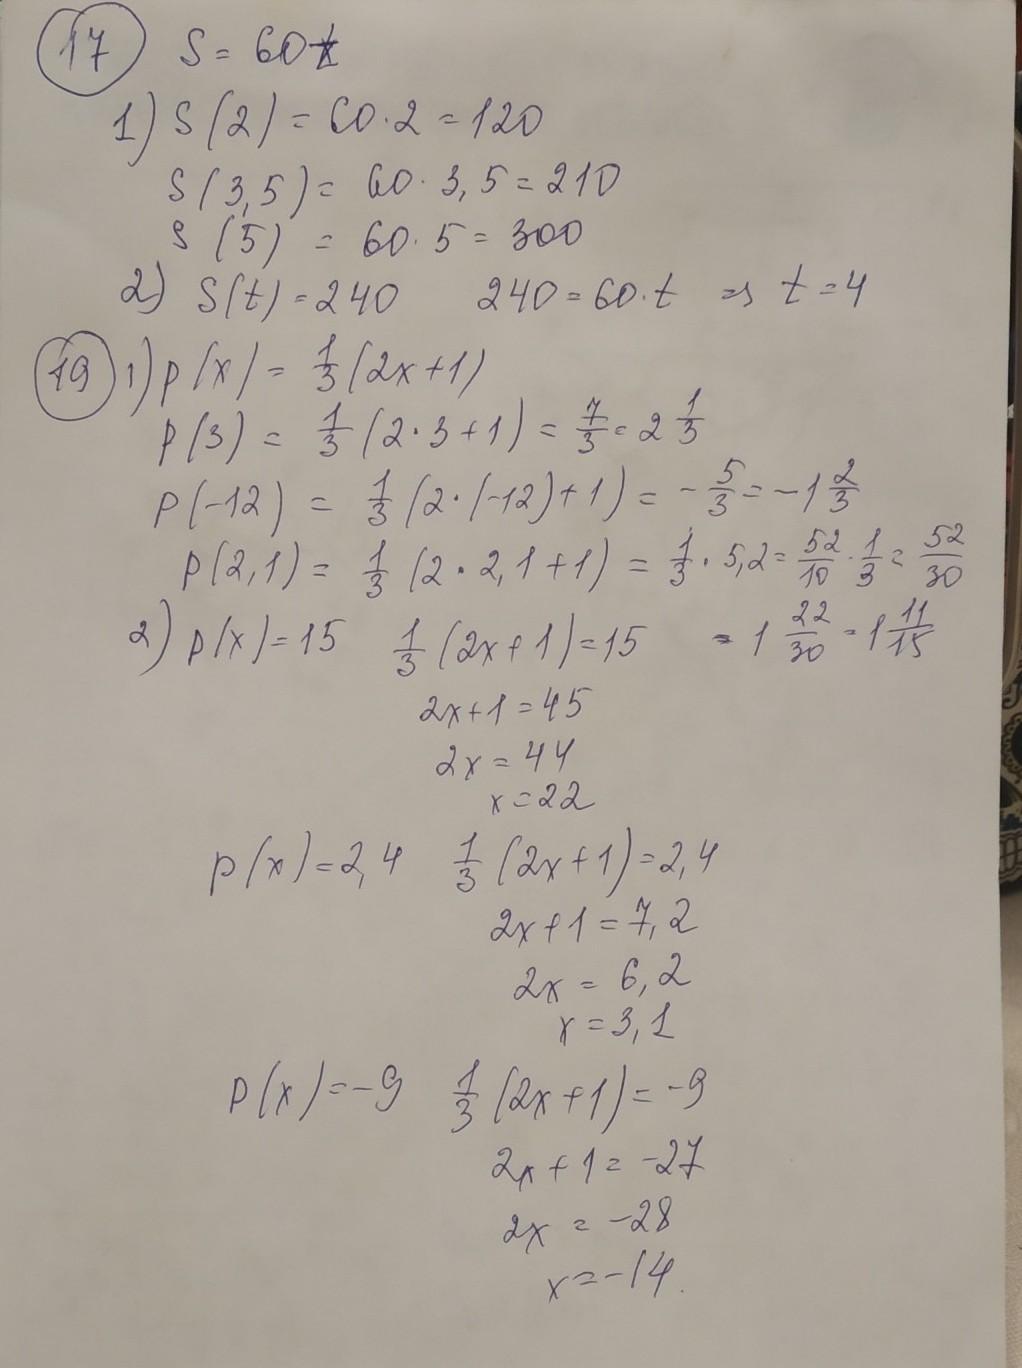 17 S = 60t
1) S(2) = 60·2 = 120
S(3,5) = 60·3,5 = 210
S(5) = 60·5 = 300
2) S(t) = 240 240 = 60·t ⇒ t = 4
19 1) p(x) = 1/3 (2x+1)
p(3) = 1/3 (2·3+1) = 7/3 = 2 1/3
p(-12) = 1/3 (2·(-12)+1) = -5/3 = -1 2/3
p(2,1) = 1/3 (2·2,1+1) = 1/3 · 5,2 = 52/10 · 1/3 = 52/30
2) p(x) = 15 1/3 (2x+1) = 15 = 1 22/30 = 1 11/15
2x+1 = 45
2x = 44
x = 22
p(x) = 2,4 1/3 (2x+1) = 2,4
2x+1 = 7,2
2x = 6,2
x = 3,1
p(x) = -9 1/3 (2x+1) = -9
2x+1 = -27
2x = -28
x = -14.